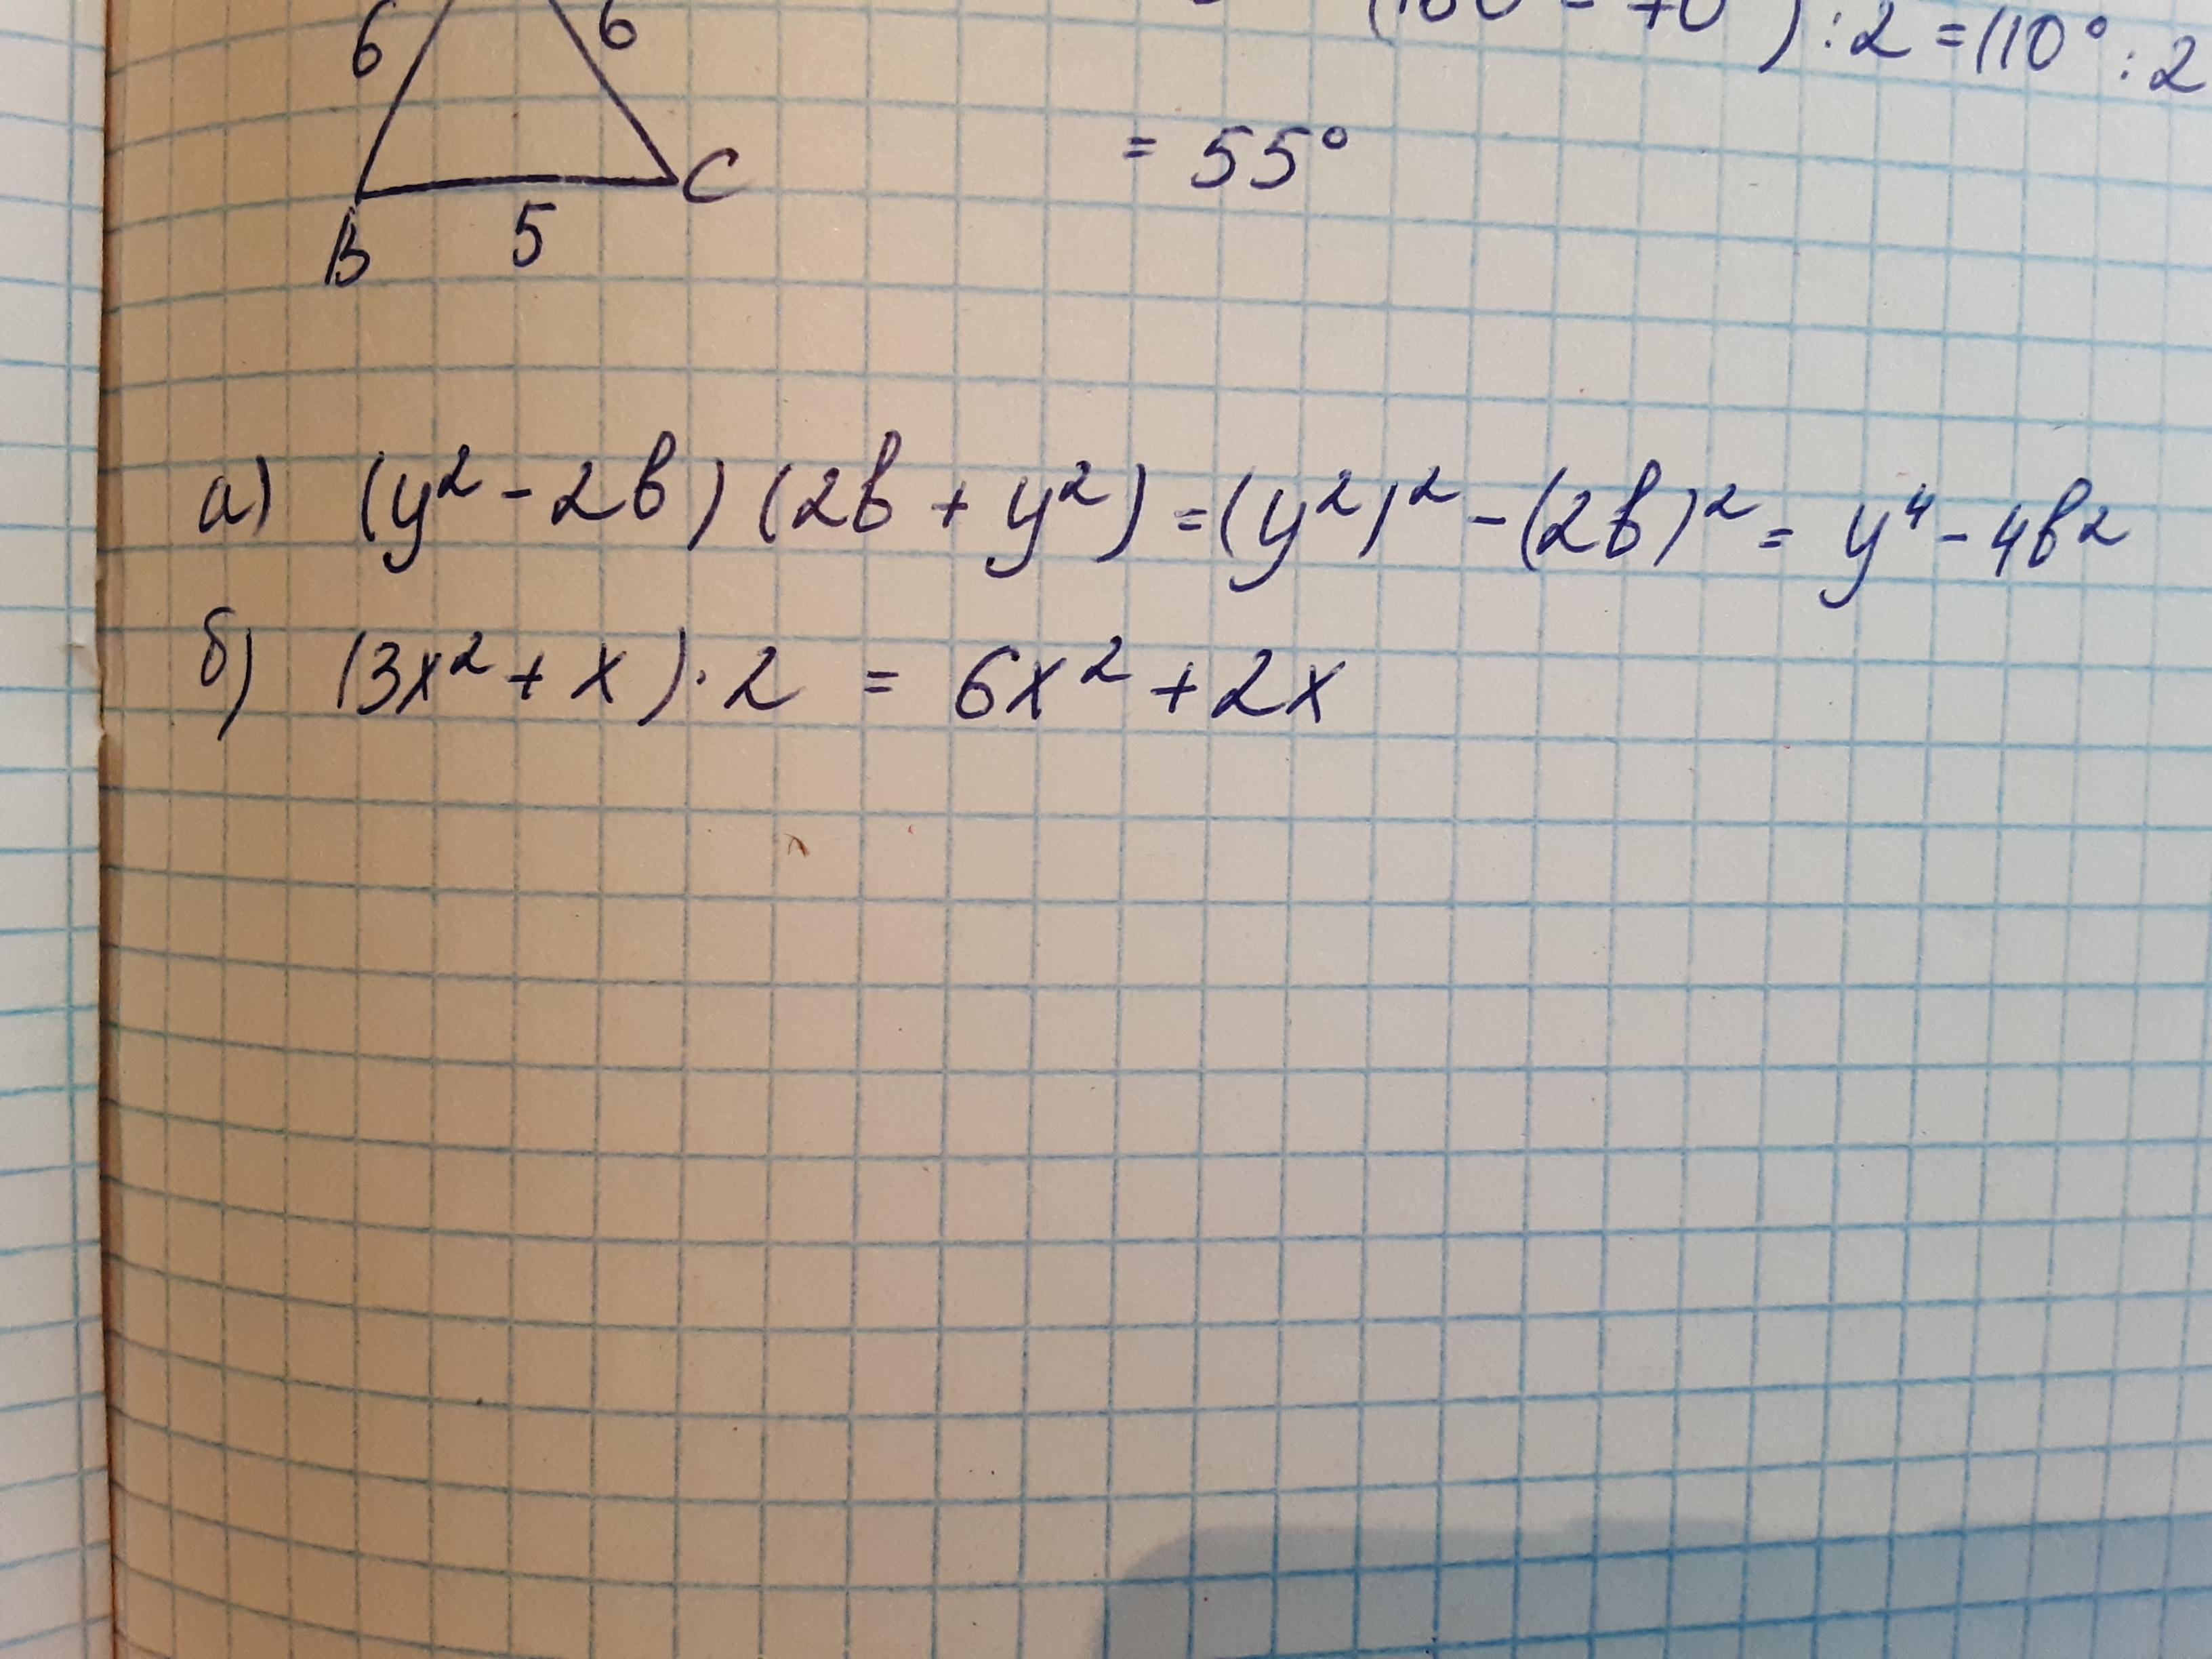 6 6 (180° - 70°) : 2 = 110° : 2
= 55°
B 5 C
а) (y² - 2b)(2b + y²) = (y²)² - (2b)² = y⁴ - 4b²
б) (3x² + x) · 2 = 6x² + 2x